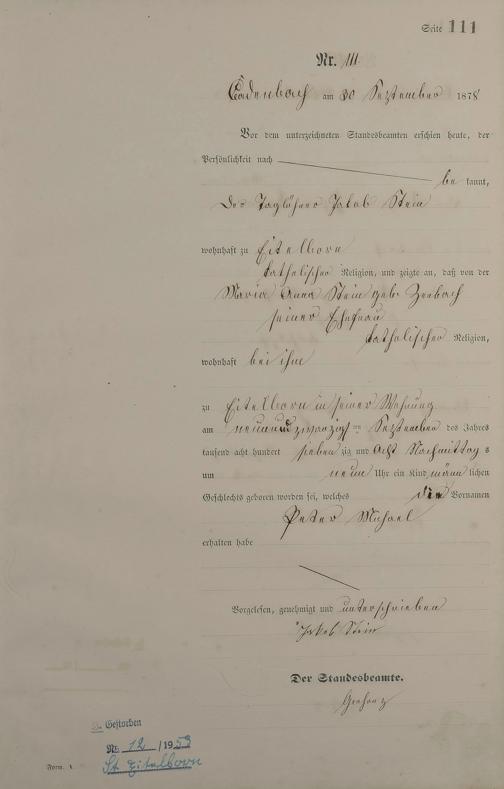 Seite 111
Nr. 111
Cadenbach am 30 September 1878
Vor dem unterzeichneten Standesbeamten erschien heute, der
Persönlichkeit nach
be kannt,
Der Taglöhner Jakob Stein
wohnhaft zu Eitelborn
katholischer Religion, und zeigte an, daß von der
Maria Anna Stein geb. Zerbach
seiner Ehefrau
katholischer Religion,
wohnhaft bei ihm
zu Eitelborn in seiner Wohnung
am neunundzwanzigten September des Jahres
tausend acht hundert sieben zig und Acht Nachmittag s
um neun Uhr ein Kind männ lichen
Geschlechts geboren worden sei, welches die Vornamen
Peter Michael
erhalten habe
Vorgelesen, genehmigt und unterschrieben
Jakob Stein
Der Standesbeamte.
Gestorben
Nr. 12 /1953
St Eitelborn
Form.